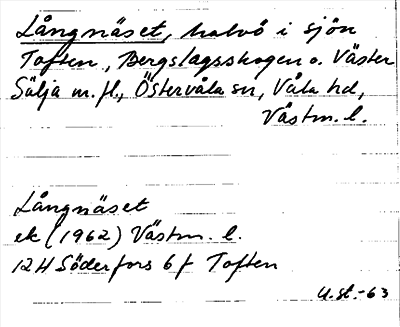 Långnäset, halvö i sjön
Toften, Bergslagsskogen o. Väster
Sälja m. fl., Östervåla sn, Våla hd,
Västm. l.
Långnäset
ek (1962) Västm. l.
12H Söderfors 6f Toften
U.st.-63